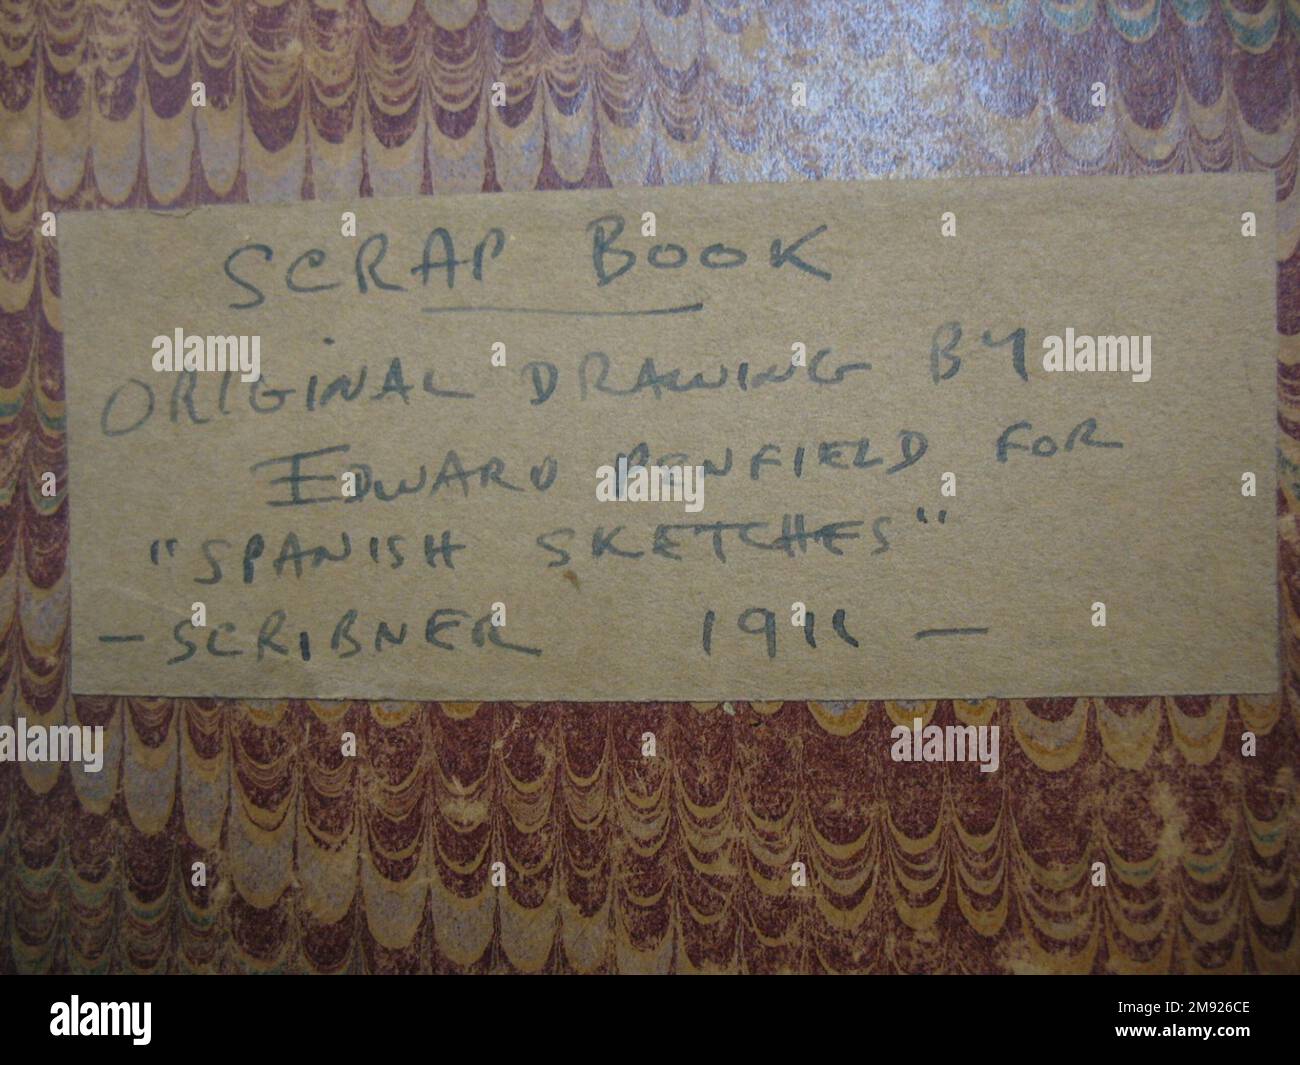 SCRAP BOOK
ORIGINAL DRAWING BY
EDWARD PENFIELD FOR
"SPANISH SKETCHES"
— SCRIBNER 1911 —
alamy
alamy
alamy
alamy
alamy
alamy
Image ID: 2M926CE
www.alamy.com